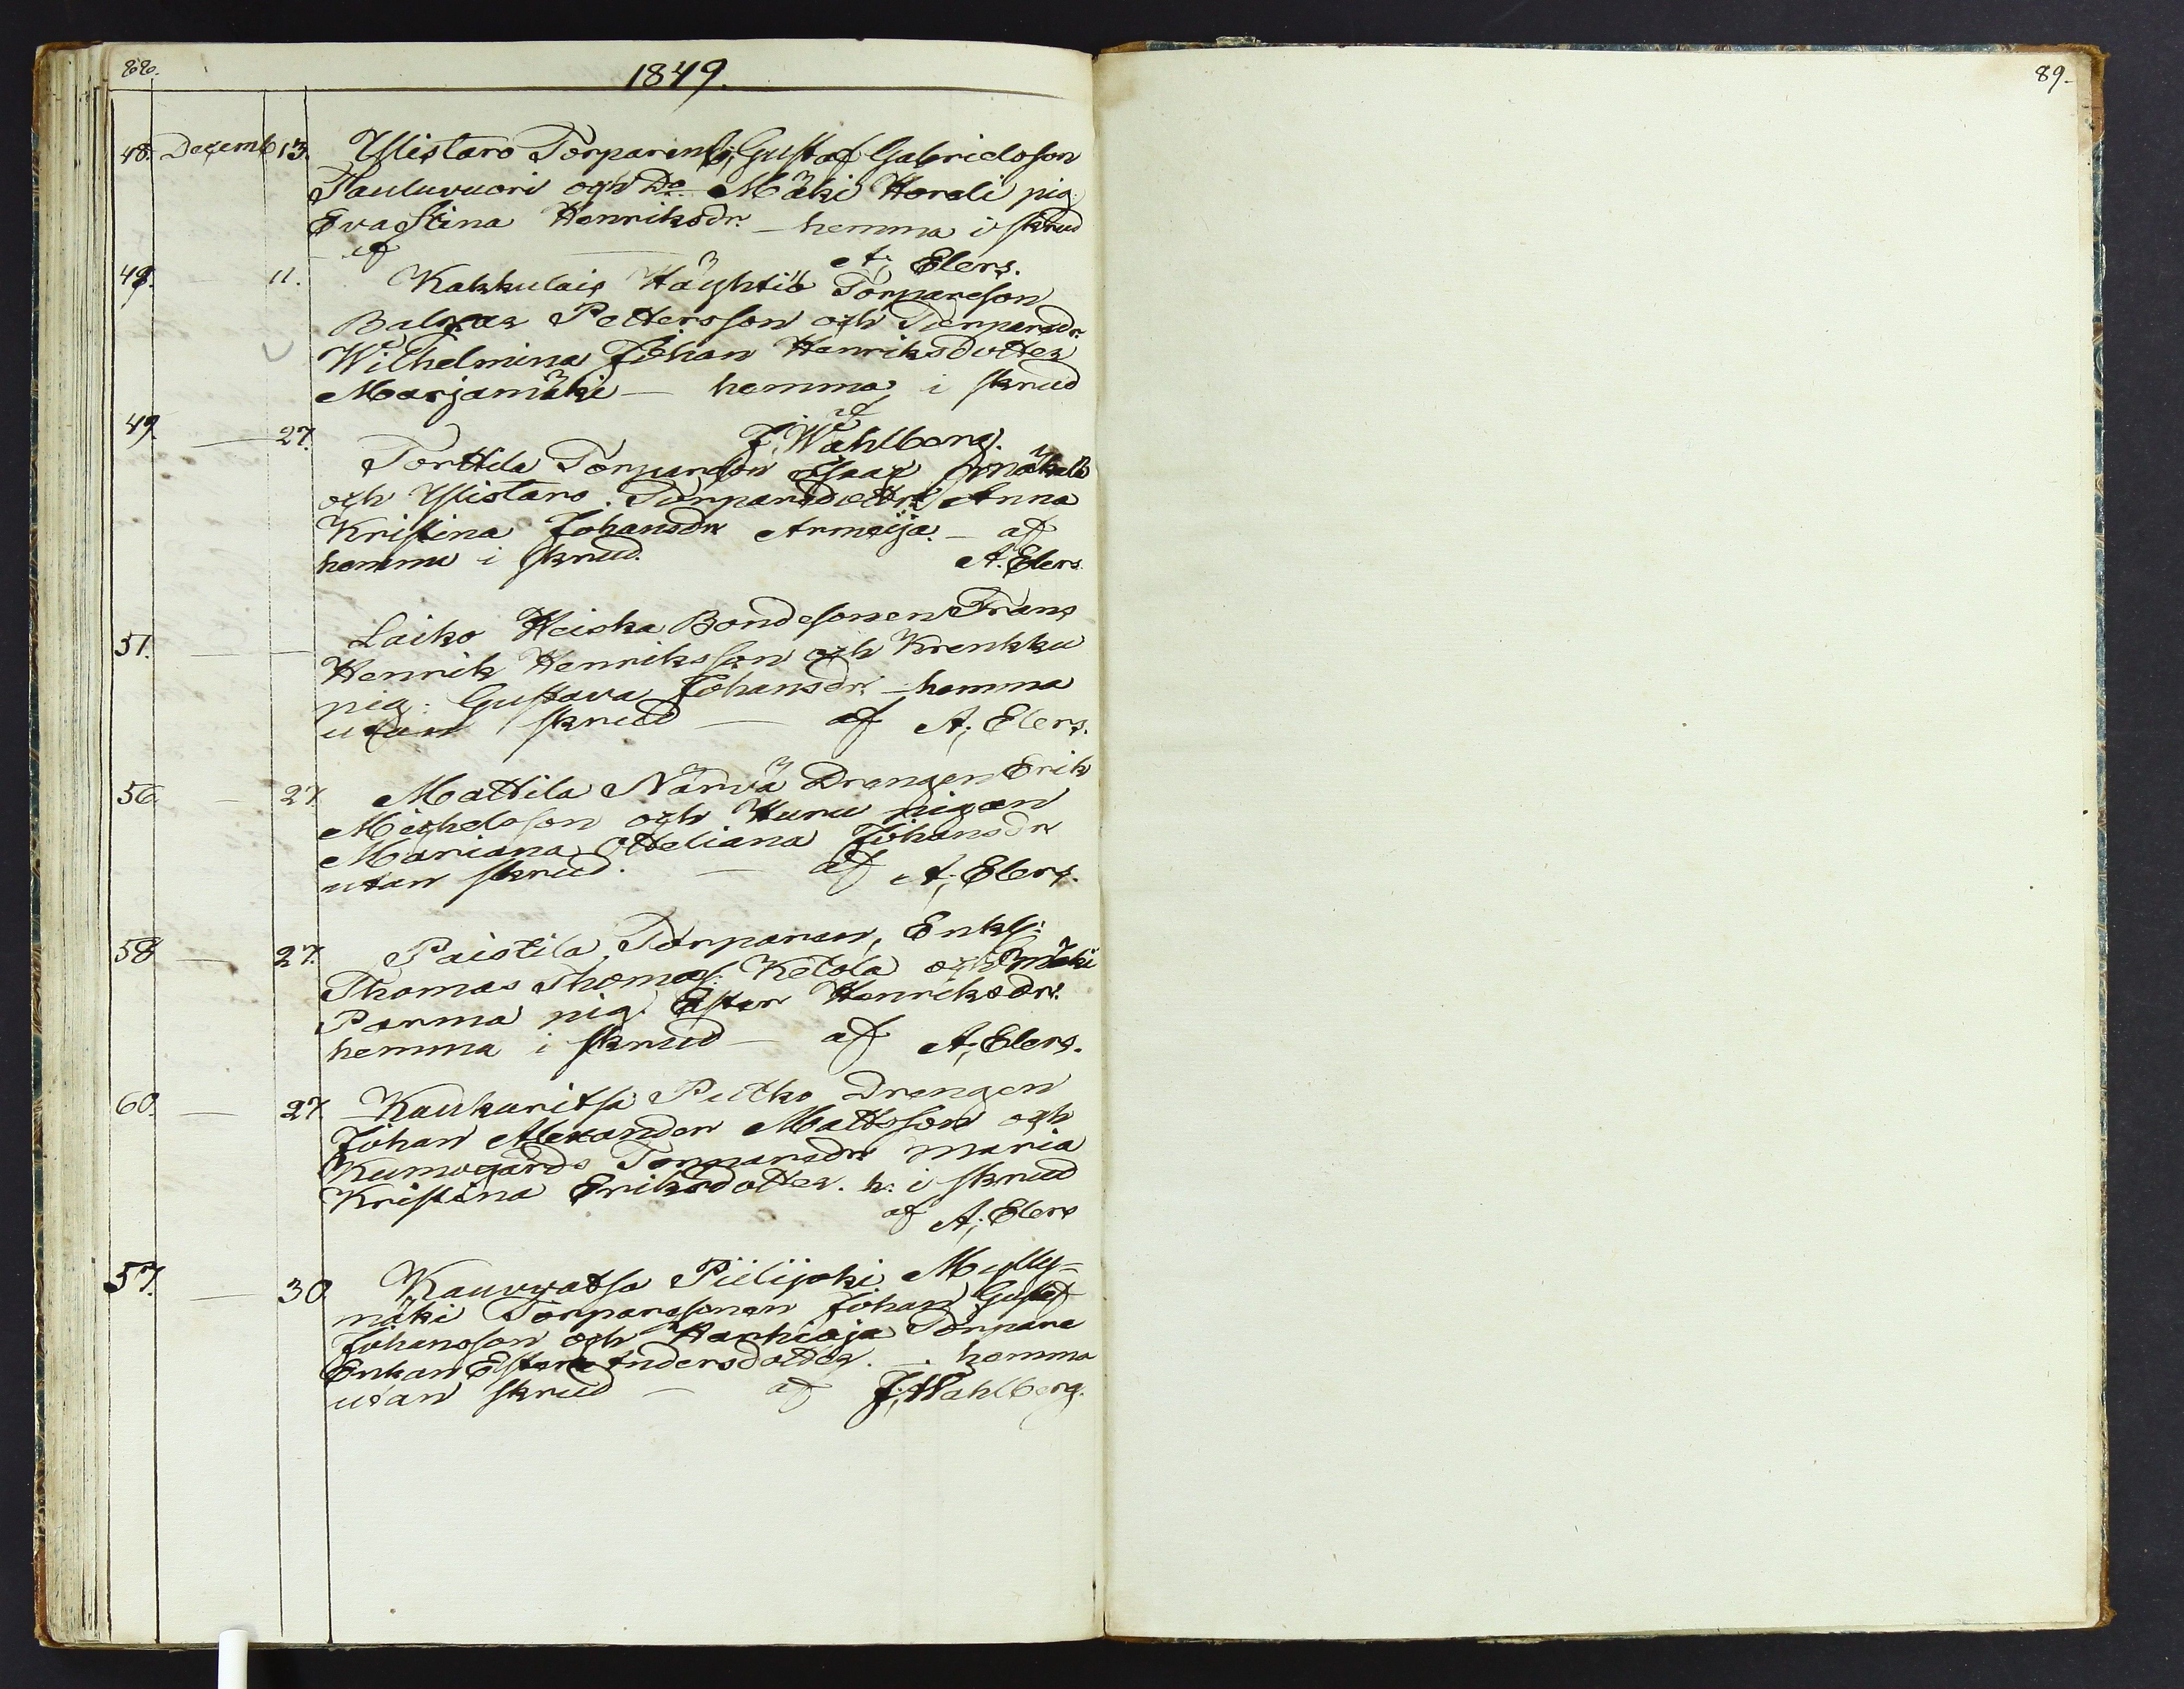 88.
1849.
48. Decemb 13. Yli staro Torparens S; Gustaf Gabrielsson
Pauluvuori och Do Mäki Horeli pig:
Eva Stina Henriksdr. – hemma i skrud
af A; Elers.
48. 11. Kakkulais Häyhtiö Torpareson
Baltzar Pettersson och Torparedr.
Wilhelmina Johan Henriksdotter
Marjamäki – hemma i skrud
af J; Wahlberg.
49. — 27. Torttila Torpareson Isaac
och Ylistaro Torparedottr. Anna
Kristina Johansdr Armeija. – af
hemma i skrud. A. Elers.
51. — — Laiko Heiska Bondesonen Frans
Henrik Henriksson och Krenkku
pig: Gustava Johansdr. – hemma
utan skrud — af A; Elers.
56. — 27 Mattila Närvä Drengen Erik
Michelsson och Huru pigan
Mariana Otteliana Johansdr
utan skrud. — af A; Elers.
58 — 27. Paistila Torparen, Enkl:
Thomas Thomas: Ketola och
Parma pig: Ester Henriksdr.
hemma i skrud – af A; Elers.
60. — 27 Kaukaritsa Putko Drengen
Johan Alexander Mattsson och
Kumogårds Torparedr Maria
Kristina Eriksdotter. h: i skrud
af A; Elers
57. — 30 Kauvatsa Piilijoki Mylly=
mäki Torparesonen Johan Gustaf
Johansson och Harhioja Torpare
Enkan Ester Andersdotter. . hemma
utan skrud — af J; Wahlberg.
89.